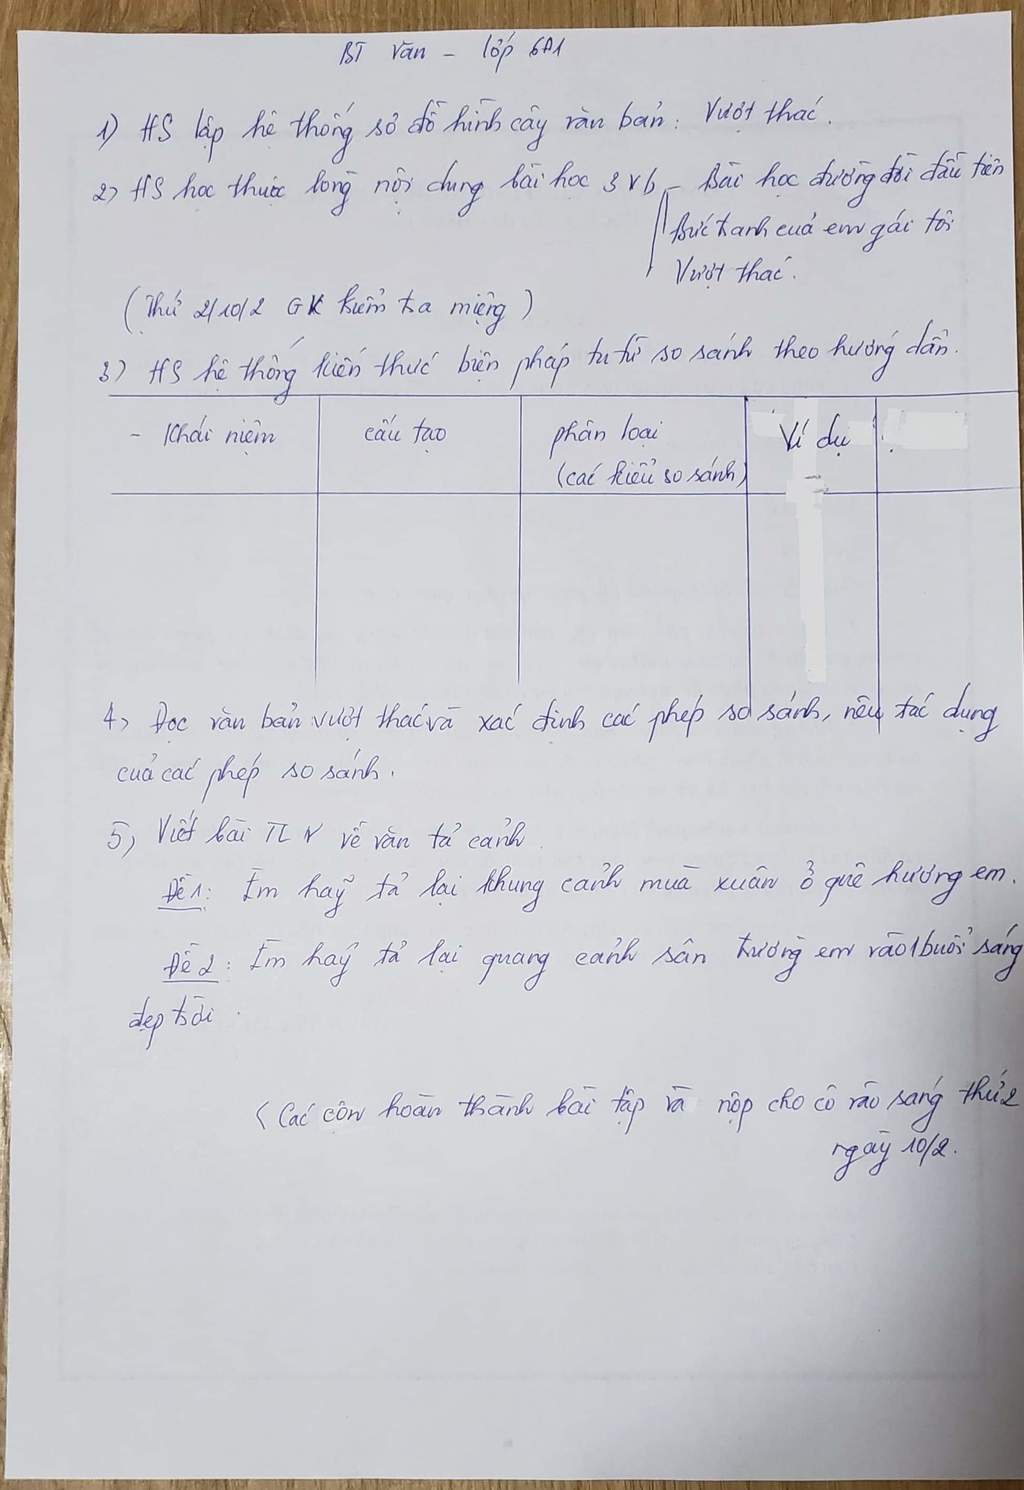 BT Văn - lớp 6A1
1) HS lập hệ thống sơ đồ hình cây văn bản: Vượt thác.
2) HS học thuộc lòng nội dung bài học 3 vb - Bài học đường đời đầu tiên
Bức tranh của em gái tôi
Vượt thác.
(Thứ 2/10/2 GK kiểm tra miệng)
3) HS hệ thống kiến thức biện pháp tu từ so sánh theo hướng dẫn.
- Khái niệm cấu tạo phân loại Ví dụ
(các kiểu so sánh)
4) Đọc văn bản vượt thác và xác định các phép so sánh, nêu tác dụng
của các phép so sánh.
5) Viết bài TLV về văn tả cảnh
Đề 1: Em hãy tả lại khung cảnh mùa xuân ở quê hương em.
Đề 2: Em hãy tả lại quang cảnh sân trường em vào 1 buổi sáng
đẹp trời.
(Các con hoàn thành bài tập và nộp cho cô vào sáng thứ 2
ngày 10/2.